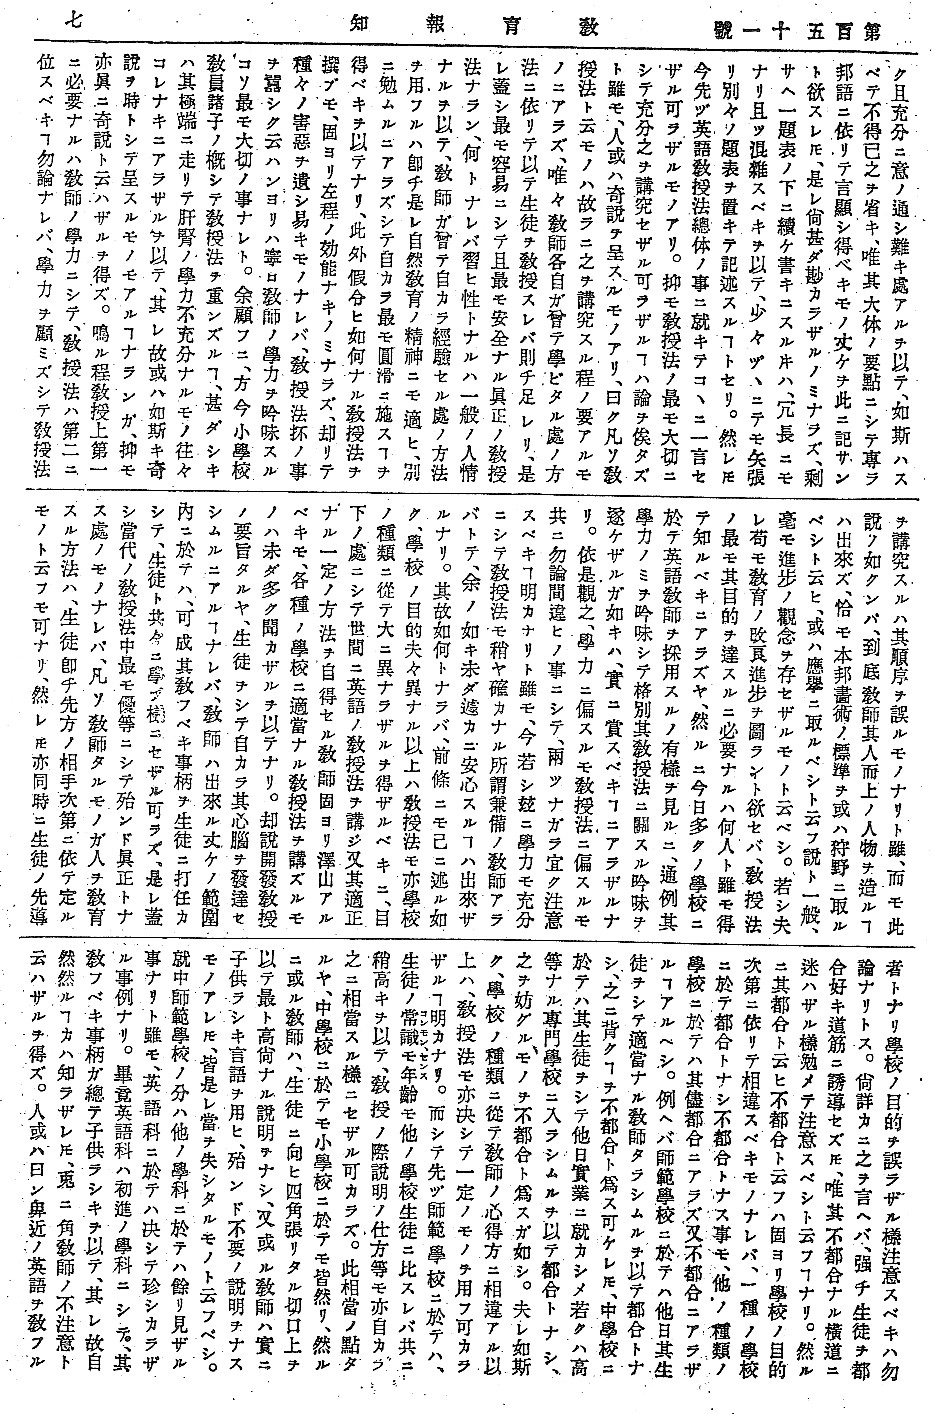 第百五十一號
敎育報知
七
ク且充分ニ意ノ通シ難キ處アルヲ以テ、如斯ハス
ベテ不得已之ヲ省キ、唯其大体ノ要點ニシテ專ラ
邦語ニ依リテ言顯シ得ベキモノ丈ケヲ此ニ記サン
ト欲スレ𪜈、是レ尙甚ダ尠カラザルノミナラズ、剩
サヘ一題表ノ下ニ續ケ書キニスルキハ、冗長ニモ
ナリ且ツ混雜スベキヲ以テ、少々ヅヽニテモ矢張
リ別々ノ題表ヲ置キテ記述スルヿトセリ。然レ𪜈
今先ヅ英語敎授法總体ノ事ニ就キテコヽニ一言セ
ザル可ラザルモノアリ。抑モ敎授法ノ最モ大切ニ
シテ充分之ヲ講究セザル可ラザルヿハ論ヲ俟タズ
ト雖モ、人或ハ奇說ヲ呈スルモノアリ、曰ク凡ソ敎
授法ト云モノハ故ラニ之ヲ講究スル程ノ要アルモ
ノニアラズ、唯々敎師各自ガ曾テ學ビタル處ノ方
法ニ依リテ以テ生徒ヲ敎授スレバ則チ足レリ、是
レ蓋シ最モ容易ニシテ且最モ安全ナル眞正ノ敎授
法ナラン、何トナレバ習ヒ性トナルハ一般ノ人情
ナルヲ以テ、敎師ガ曾テ自カラ經驗セル處ノ方法
ヲ用フルハ卽チ是レ自然敎育ノ精神ニモ適ヒ、別
ニ勉ムルニアラズシテ自カラ最モ圓滑ニ施スヿヲ
得ベキヲ以テナリ、此外假令ヒ如何ナル敎授法ヲ
撰ブモ、固ヨリ左程ノ効能ナキノミナラズ、却リテ
種々ノ害惡ヲ遺シ易キモノナレバ、敎授法抔ノ事
ヲ喧シク云ハンヨリハ寧ロ敎師ノ學力ヲ吟味スル
コソ最モ大切ノ事ナレト。余顧フニ、方今小學校
敎員諸子ノ槪シテ敎授法ヲ重ンズルヿ、甚ダシキ
ハ其極端ニ走リテ肝腎ノ學力不充分ナルモノ往々
コレナキニアラザルヲ以テ、其レ故或ハ如斯キ奇
說ヲ時トシテ呈スルモノモアルヿナランガ、抑モ
亦眞ニ奇說ト云ハザルヲ得ズ。鳴ル程敎授上第一
ニ必要ナルハ敎師ノ學力ニシテ、敎授法ハ第二ニ
位スベキヿ勿論ナレバ、學力ヲ顧ミズシテ敎授法
ヲ講究スルハ其順序ヲ誤ルモノナリト雖、而モ此
說ノ如クンバ、到底敎師其人而上ノ人物ヲ造ルヿ
ハ出來ズ、恰モ本邦畵術ノ標準ヲ或ハ狩野ニ取ル
ベシト云ヒ、或ハ應擧ニ取ルベシト云フ說ト一般、
毫モ進步ノ觀念ヲ存セザルモノト云ベシ。若シ夫
レ苟モ敎育ノ改良進步ヲ圖ラント欲セバ、敎授法
ノ最モ其目的ヲ達スルニ必要ナルハ何人ト雖モ得
テ知ルベキニアラズヤ、然ルニ今日多クノ學校ニ
於テ英語敎師ヲ採用スルノ有樣ヲ見ルニ、通例其
學力ノミヲ吟味シテ格別其敎授法ニ關スル吟味ヲ
逐ケザルガ如キハ、實ニ賞スベキヿニアラザルナ
リ。依是觀之、學力ニ偏スルモ敎授法ニ偏スルモ
共ニ勿論間違ヒノ事ニシテ、兩ツナガラ宜ク注意
スベキヿ明カナリト雖モ、今若シ玆ニ學力モ充分
ニシテ敎授法モ稍ヤ確カナル所謂兼備ノ敎師アラ
バトテ、余ノ如キ未ダ遽カニ安心スルヿハ出來ザ
ルナリ。其故如何トナラバ、前條ニモ已ニ述ル如
ク、學校ノ目的夫々異ナル以上ハ敎授法モ亦學校
ノ種類ニ從テ大ニ異ナラザルヲ得ザルベキニ、目
下ノ處ニシテ世間ニ英語ノ敎授法ヲ講ジ又其適正
ナル一定ノ方法ヲ自得セル敎師固ヨリ澤山アル
ベキモ、各種ノ學校ニ適當ナル敎授法ヲ講ズルモ
ノハ未ダ多ク聞カザルヲ以テナリ。却說開發敎授
ノ要旨タルヤ、生徒ヲシテ自カラ其心腦ヲ發達セ
シムルニアルヿナレバ、敎師ハ出來ル丈ケノ範圍
內ニ於テハ、可成其敎フベキ事柄ヲ生徒ニ打任カ
シテ、生徒ト共々ニ學ブ樣ニセザル可ラズ、是レ蓋
シ當代ノ敎授法中最モ優等ニシテ殆ンド眞正トナ
ス處ノモノナレバ、凡ソ敎師タルモノガ人ヲ敎育
スル方法ハ、生徒卽チ先方ノ相手次第ニ依テ定ル
モノト云フモ可ナリ、然レ𪜈亦同時ニ生徒ノ先導
者トナリ學校ノ目的ヲ誤ラザル樣注意スベキハ勿
論ナリトス。尙詳カニ之ヲ言ヘバ、强チ生徒ヲ都
合好キ道筋ニ誘導セズ𪜈、唯其不都合ナル橫道ニ
迷ハザル樣勉メテ注意スベシト云フヿナリ。然ル
ニ其都合ト云ヒ不都合ト云フハ固ヨリ學校ノ目的
次第ニ依リテ相違スベキモノナレバ、一種ノ學校
ニ於テ都合トナシ不都合トナス事モ、他ノ種類ノ
學校ニ於テハ其儘都合ニアラズ又不都合ニアラザ
ルヿアルベシ。例ヘバ師範學校ニ於テハ他日其生
徒ヲシテ適當ナル敎師タラシムルヲ以テ都合トナ
シ、之ニ背クヿヲ不都合ト爲ス可ケレ𪜈、中學校ニ
於テハ其生徒ヲシテ他日實業ニ就カシメ若クハ高
等ナル專門學校ニ入ラシムルヲ以テ都合トナシ、
之ヲ妨グルモノヲ不都合ト爲スガ如シ。夫レ如斯
ク、學校ノ種類ニ從テ敎師ノ心得方ニ相違アル以
上ハ、敎授法モ亦決シテ一定ノモノヲ用フ可カラ
ザルヿ明カナリ。而シテ先ヅ師範學校ニ於テハ、
生徒ノ常識コンモンセンスモ年齡モ他ノ學校生徒ニ比スレバ共ニ
稍高キヲ以テ、敎授ノ際說明ノ仕方等モ亦自カラ
之ニ相當スル樣ニセザル可カラズ。此相當ノ點タ
ルヤ、中學校ニ於テモ小學校ニ於テモ皆然リ、然ル
ニ或ル敎師ハ、生徒ニ向ヒ四角張リタル切口上ヲ
以テ最ト高尙ナル說明ヲナシ、又或ル敎師ハ實ニ
子供ラシキ言語ヲ用ヒ、殆ンド不要ノ說明ヲナス
モノアレ𪜈、皆是レ當ヲ失シタルモノト云フベシ。
就中師範學校ノ分ハ他ノ學科ニ於テハ餘リ見ザル
事ナリト雖モ、英語科ニ於テハ決シテ珍シカラザ
ル事例ナリ。畢竟英語科ハ初進ノ學科ニシテ、其
敎フベキ事柄ガ總テ子供ラシキヲ以テ、其レ故自
然然ルヿカハ知ラザレ𪜈、兎ニ角敎師ノ不注意ト
云ハザルヲ得ズ。人或ハ曰ン卑近ノ英語ヲ敎フル